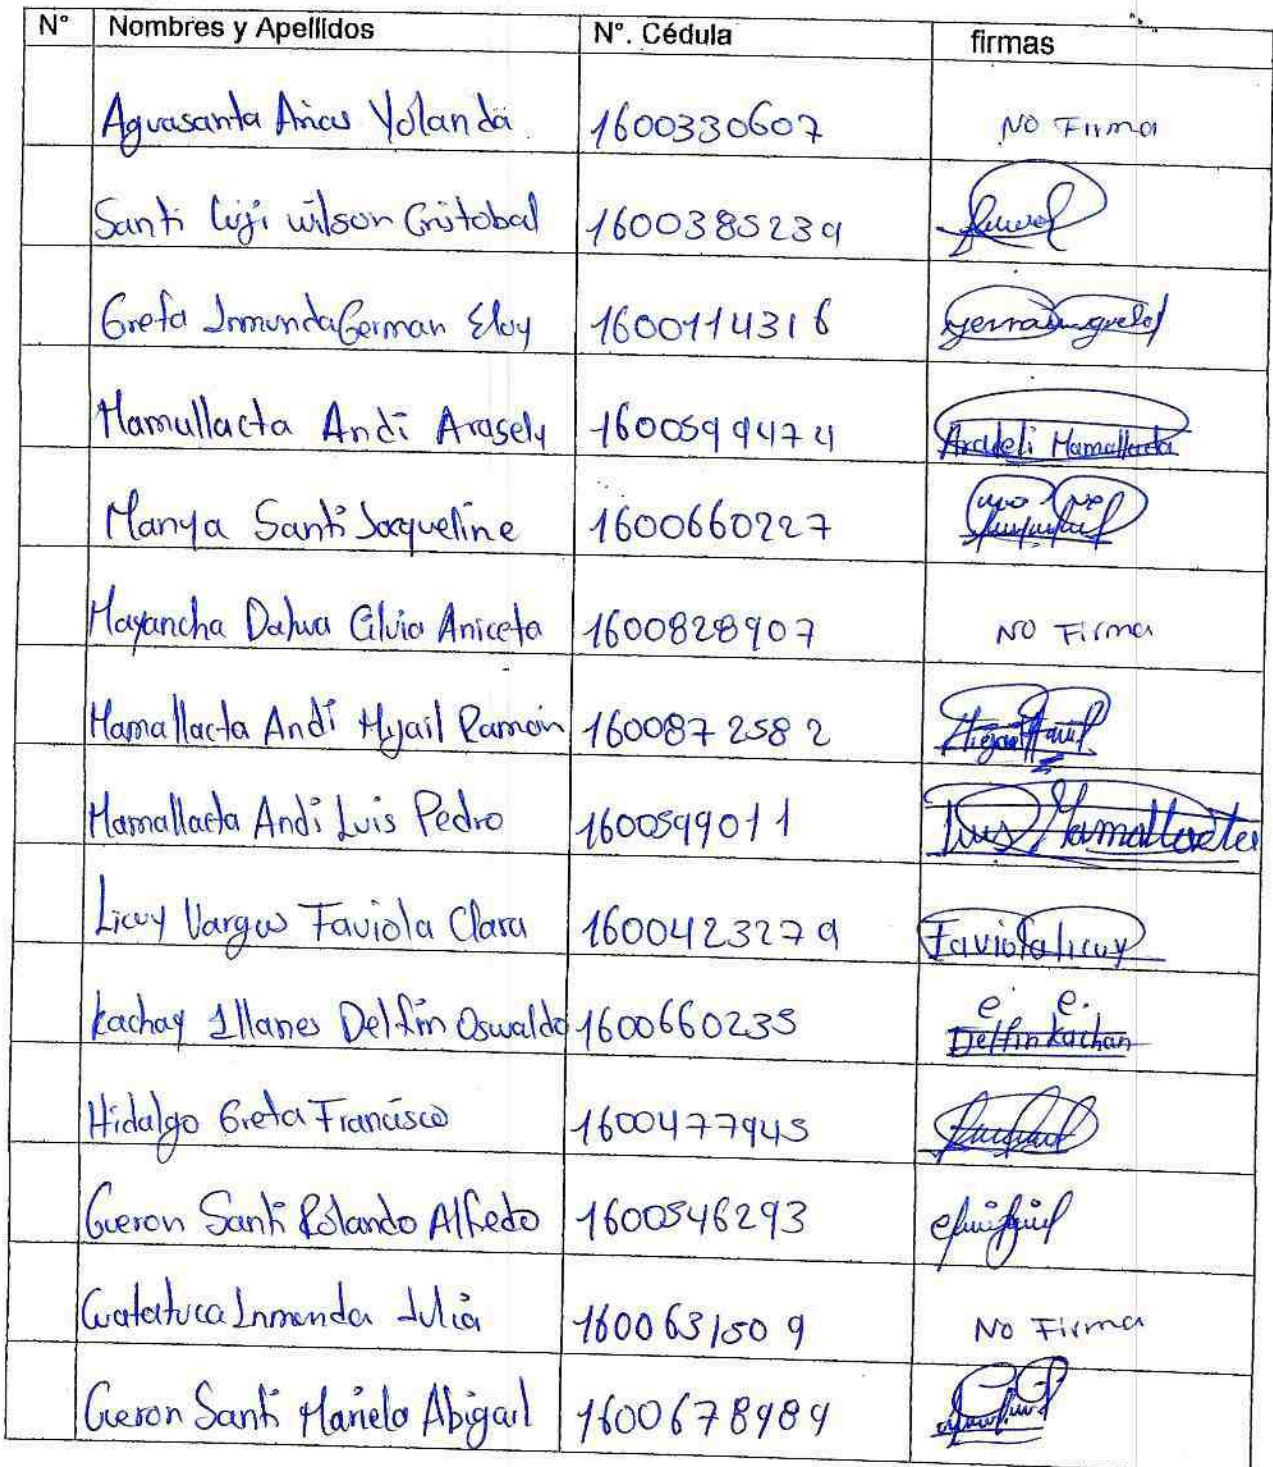 N° Nombres y Apellidos N°. Cédula firmas
Aguasanta Añas Yolanda 1600330607 NO Firma
Santi Cuji wilson Cristobal 1600385239
Grefa Inmunda German Eloy 1600114316
Mamullacta Andi Arasely 1600599474 Aradeli Mamallacta
Manya Santi Jaqueline 1600660227
Mayancha Dahua Cilvia Aniceta 1600828907 NO Firma
Mamallacta Andi Hijail Ramon 1600872582
Mamallacta Andi Luis Pedro 1600599011 Luis Mamallacta
Licuy Vargas Faviola Clara 1600423279 Faviola licuy
Kachay Illanes Delfin Oswaldo 1600660235 Delfin Kachan
Hidalgo Greta Francisco 1600477945
Gueron Santi Rolando Alfredo 1600546293
Guatatuca Inmunda Julia 1600631509 No Firma
Gueron Santi Mariela Abigail 1600678989